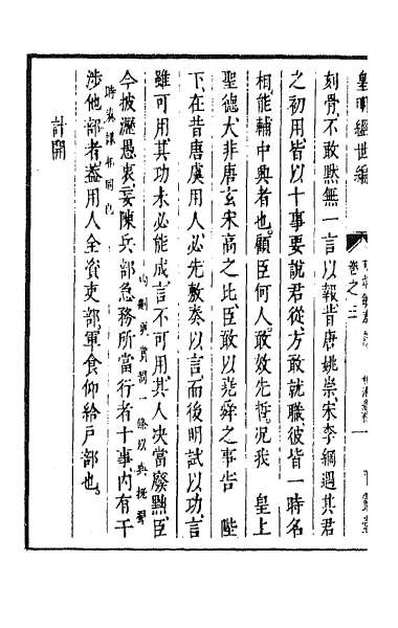 皇明經世編
卷之三
刻骨、不敢默無一言以報、昔唐姚崇、宋李綱遇其君
之初用、皆以十事要說君從、方敢就職、彼皆一時名
相、能輔中興者也。顧臣何人、敢效先哲。況我 皇上
聖德、大非唐玄宋高之比、臣敢以堯舜之事告 陛
下、在昔唐虞用人、必先敷奏以言、而後明試以功、言
雖可用、其功未必能成、言不可用、其人決當廢黜、臣
今披瀝愚衷、妄陳兵部急務所當行者十事、內有干
涉他部者、蓋用人全資吏部、軍食仰給戶部也。
計開